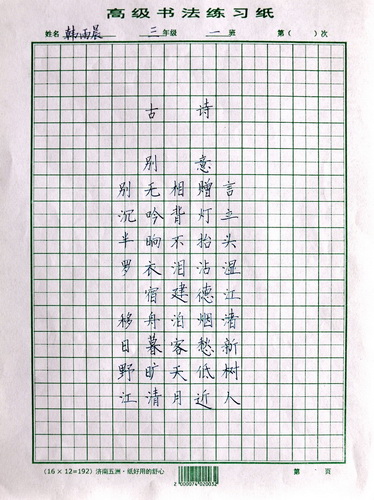 高级书法练习纸
姓名 韩雨晨 三年级 一班 第( )次
古诗
别意
别无相赠言
沉吟背灯立
半晌不抬头
罗衣泪沾湿
宿建德江
移舟泊烟渚
日暮客愁新
野旷天低树
江清月近人
(16×12=192) 济南五洲·纸好用的舒心
2 000074 020032
第 页